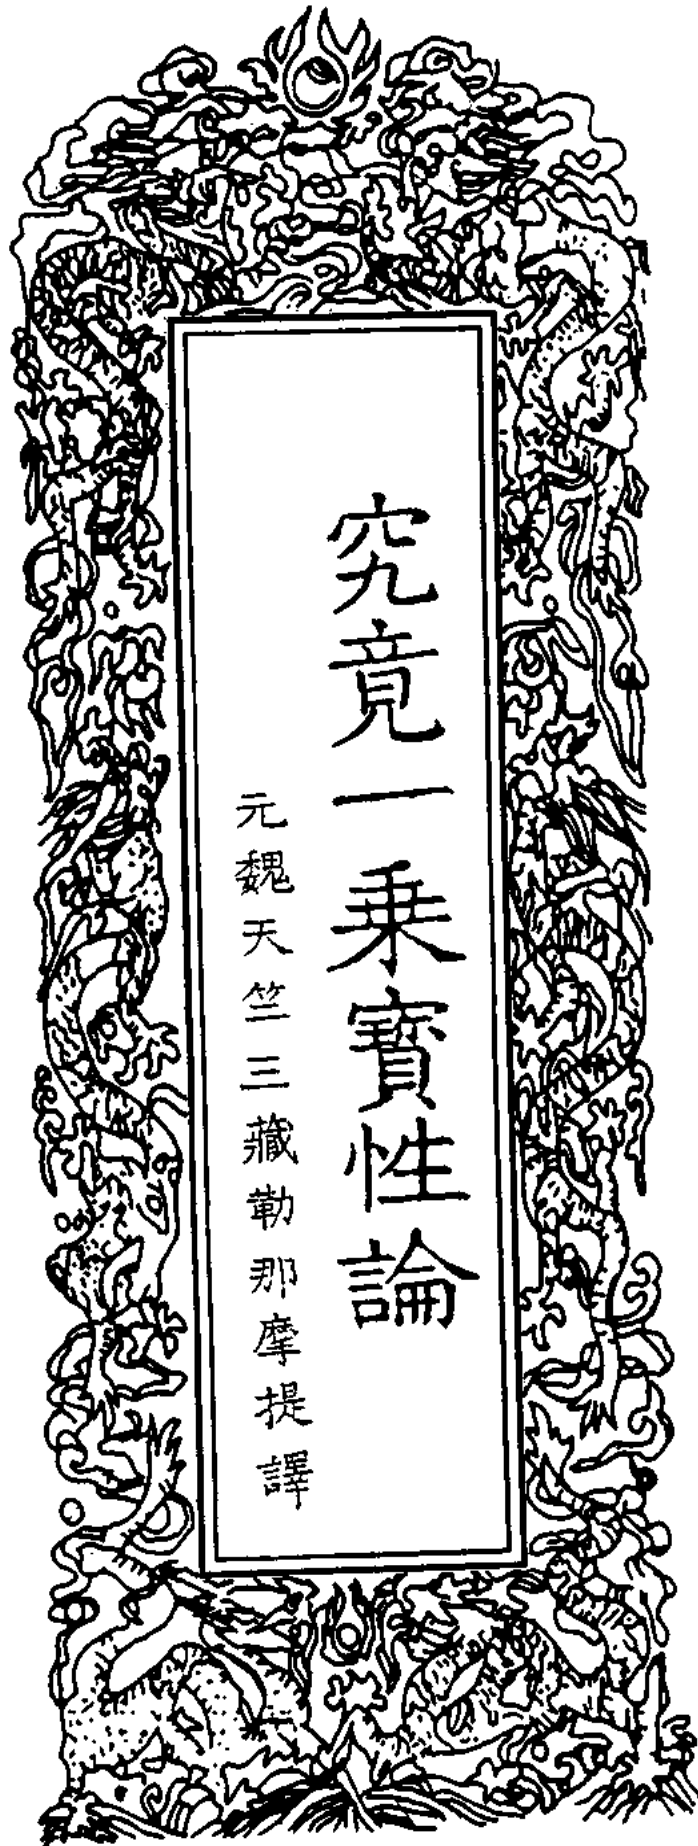 究竟一乗寶性論
元魏天竺三藏勒那摩提譯